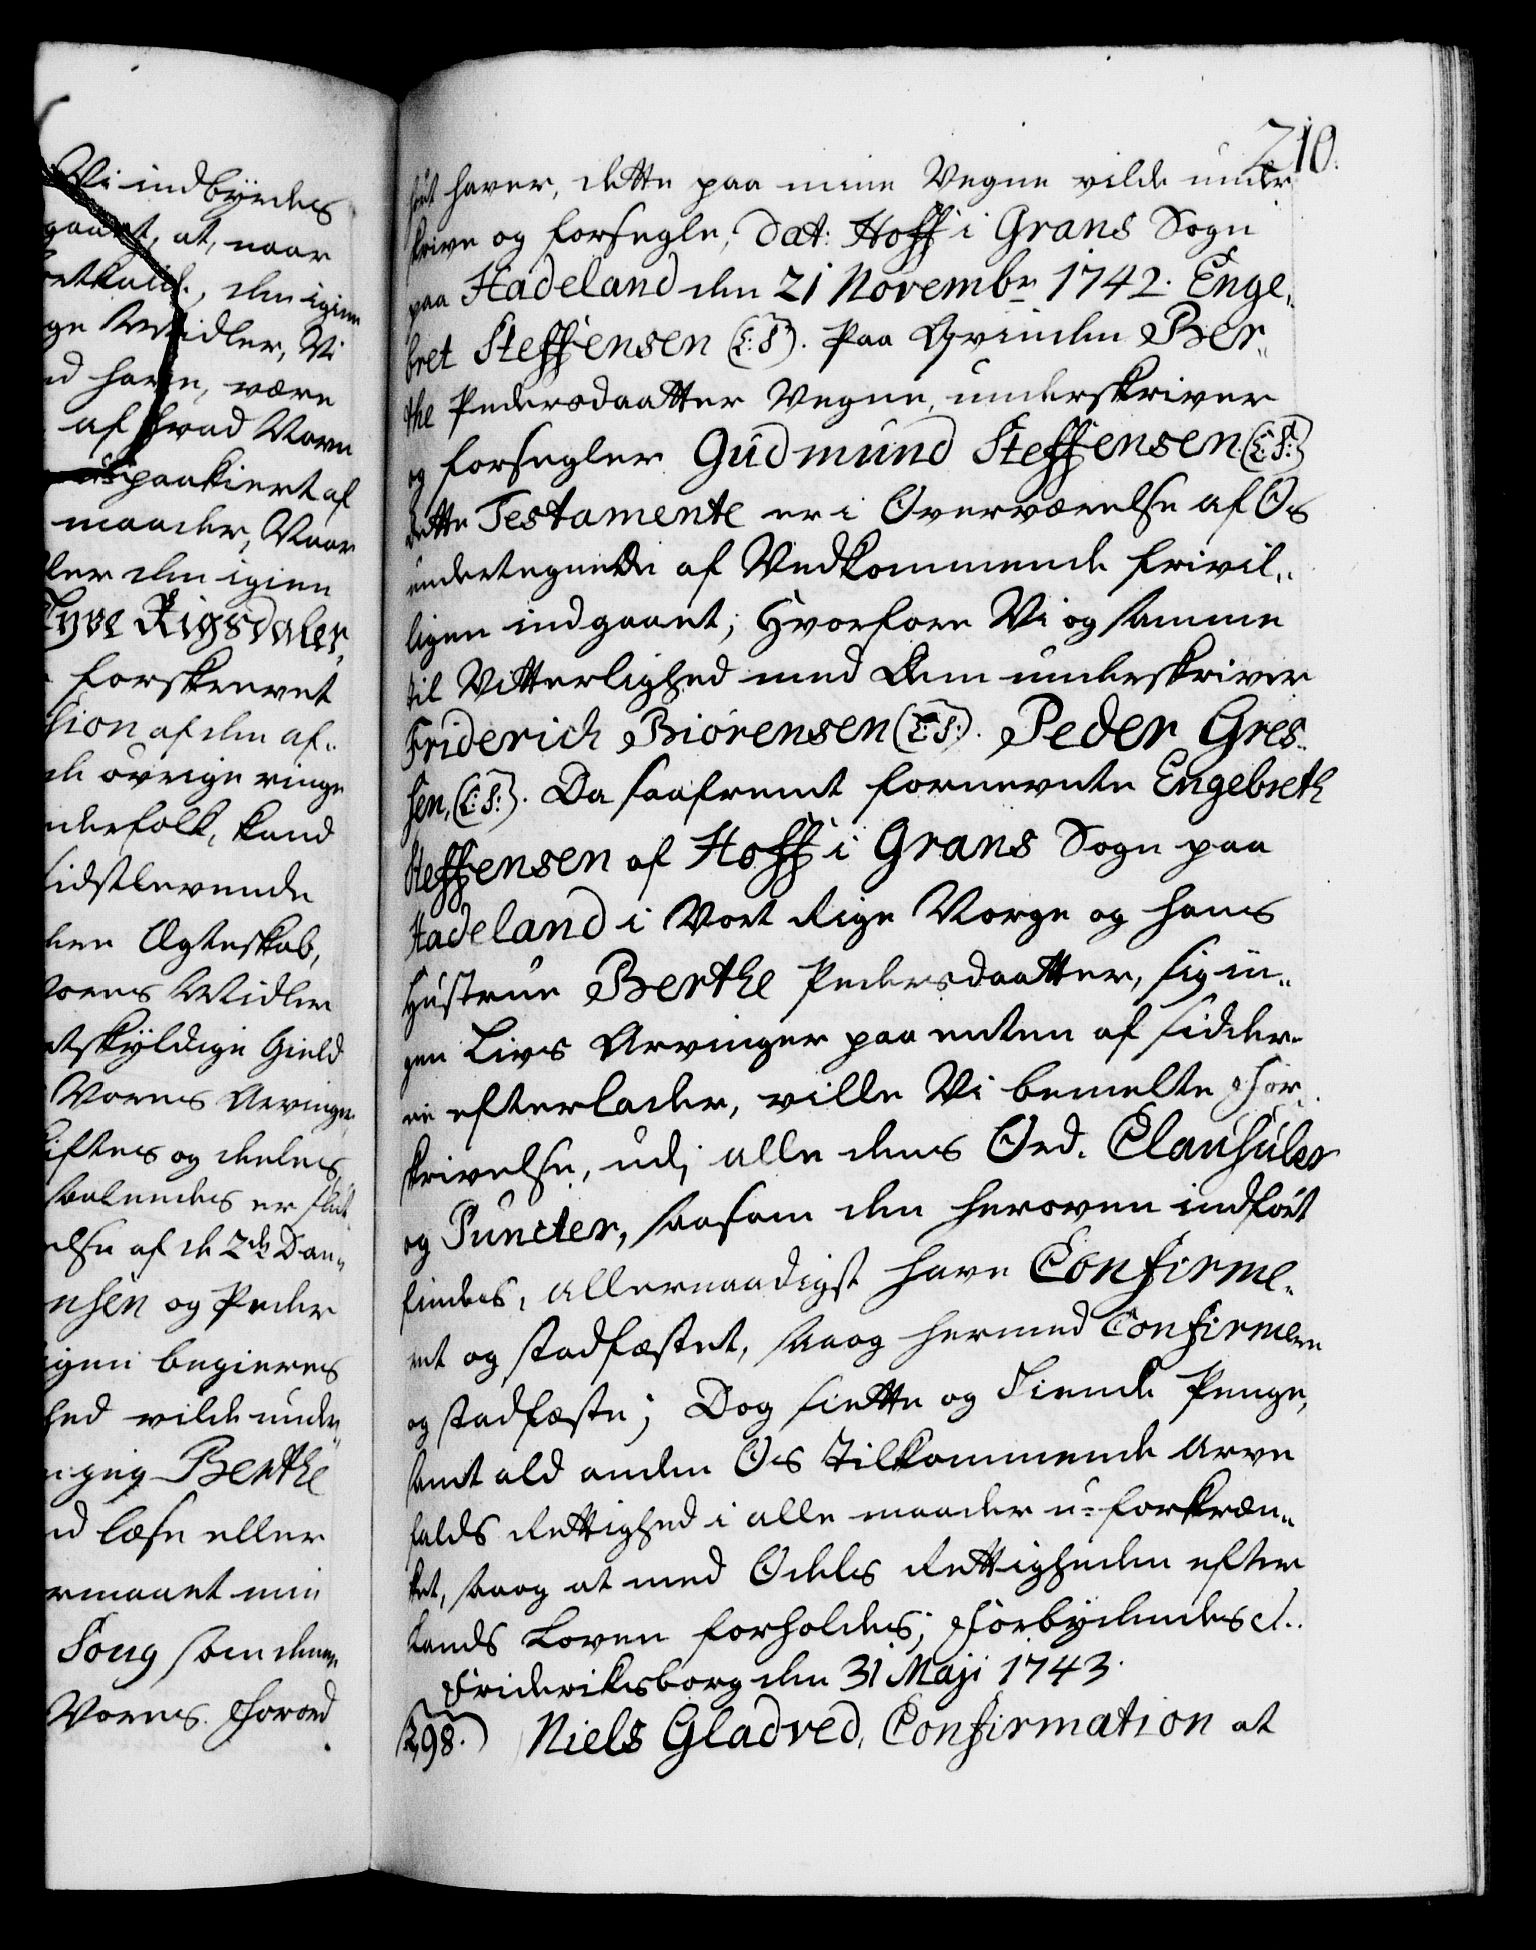 Vi indbyrdes
gaaet, at, naar
, den igien
ge Midler, Vi
d have, være
af hvad Navn
paakiert af
maader, Naar
ler den igien
Tyve Rigsdaler,
forskrevet
sion af den af-
de øvrige ringe
nderfolk, kand
sidstlevende
den Ægteskab,
Vores Midler
tskyldige Gield
Vores Arvinge
iftes og deeles
saaledes er slut
else af de 2de Dan-
nsen og Peder
igen begieres
hed vilde under
jeg Berthe
d læse eller
rmaaet min
Song som denne
Vores Forord
210.
ført haver, dette paa mine Vegne vilde under
skrive og forsegle, Dat: Hoff i Grans Sogn
paa Hadeland den 21 Novembr 1742. Enge-
bret Steffensen (L:S). Paa Qvinden Ber-
the Pedersdaatter Vegne, underskriver
og forsegler Gudmund Steffensen (L:S:)
dette Testamente er i Overværelse af Os
undertegnede af Vedkommende frivil-
ligen indgaaet; Hvorfore Vi og samme
til Vitterlighed med Dem underskriver
Friderich Biørensen (L:S:). Peder Gres-
sen, (L:S:). Da saafremt fornevnte Engebreth
Steffensen af Hoff i Grans Sogn paa
Hadeland i Vort Rige Norge og hans
Hustrue Berthe Pedersdaatter, sig in-
gen Livs Arvinger paa enten af Sidder-
ne efterlader, ville Vi bemelte For-
skrivelse, udj alle dens Ord. Clausuler
og Puncter, saasom den heroven indført
findes, allernaadigst have Confirme-
ret og stadfæstet, saa og hermed Confirmere
og stadfæste; Dog siette og Tiende Penge,
samt ald anden Os Tilkommende Arve
falds Rettighed i alle maader u-forkræn-
ket, saa og at med Odels Rettigheden efter
Lands Loven forholdes; Forbydendes el..
Frideriksborg den 31 Maji 1743.
298.) Niels Gladved, Confirmation at